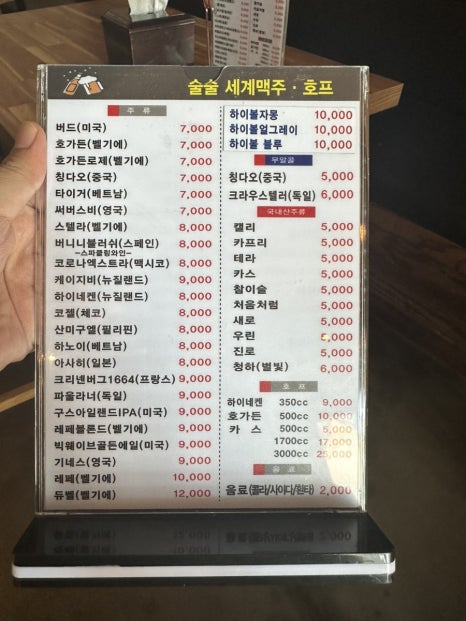 술술 세계맥주 · 호프
주 류
버드(미국) 7,000
호가든(벨기에) 7,000
호가든로제(벨기에) 7,000
칭다오(중국) 7,000
타이거(베트남) 7,000
써버스비(영국) 7,000
스텔라(벨기에) 8,000
버니니블러쉬(스페인) 8,000
-스파클링와인-
코로나엑스트라(멕시코) 8,000
케이지비(뉴질랜드) 9,000
하이네켄(뉴질랜드) 8,000
코젤(체코) 8,000
산미구엘(필리핀) 8,000
하노이(베트남) 8,000
아사히(일본) 8,000
크리넨버그1664(프랑스) 9,000
파울라너(독일) 9,000
구스아일랜드IPA(미국) 9,000
레페블론드(벨기에) 9,000
빅웨이브골든에일(미국) 9,000
기네스(영국) 9,000
레페(벨기에) 10,000
듀벨(벨기에) 12,000
하이볼자몽 10,000
하이볼얼그레이 10,000
하이볼 블루 10,000
무알콜
칭다오(중국) 5,000
크라우스텔러(독일) 6,000
국내산주류
캘리 5,000
카프리 5,000
테라 5,000
카스 5,000
참이슬 5,000
처음처럼 5,000
새로 5,000
우린 5,000
진로 5,000
청하(별빛) 6,000
호 프
하이네켄 350cc 9,000
호가든 500cc 10,000
카 스 500cc 5,000
1700cc 17,000
3000cc 25,000
음 료
음료(콜라/사이다/환타) 2,000